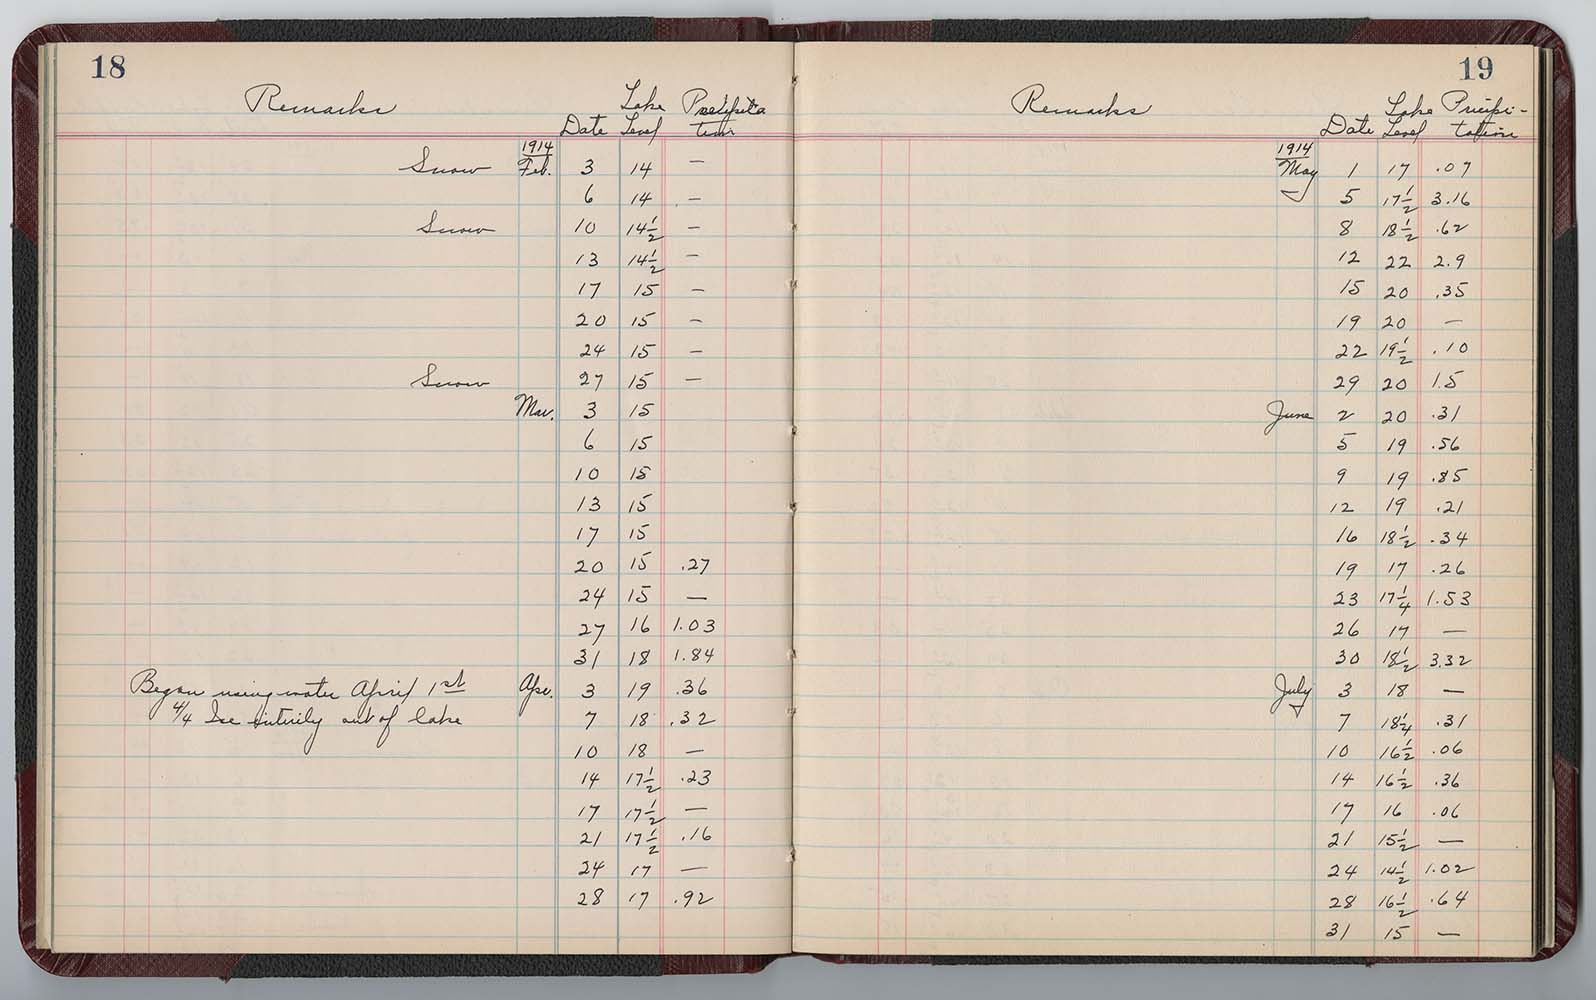 18
Remarks Date Lake Level Precipitation
1914
Snow Feb. 3 14 —
6 14 —
Snow 10 14½ —
13 14½ —
17 15 —
20 15 —
24 15 —
Snow 27 15 —
Mar. 3 15
6 15
10 15
13 15
17 15
20 15 .27
24 15 —
27 16 1.03
31 18 1.84
Began using water April 1st Apr. 3 19 .36
4/4 Ice entirily out of lake 7 18 .32
10 18 —
14 17½ .23
17 17½ —
21 17½ .16
24 17 —
28 17 .92
19
Remarks Date Lake Level Pricipi-tation
1914
May 1 17 .07
5 17½ 3.16
8 18½ .62
12 22 2.9
15 20 .35
19 20 —
22 19½ .10
29 20 1.5
June 2 20 .31
5 19 .56
9 19 .85
12 19 .21
16 18½ .34
19 17 .26
23 17¼ 1.53
26 17 —
30 18½ 3.32
July 3 18 —
7 18¼ .31
10 16½ .06
14 16½ .36
17 16 .06
21 15½ —
24 14½ 1.02
28 16½ .64
31 15 —